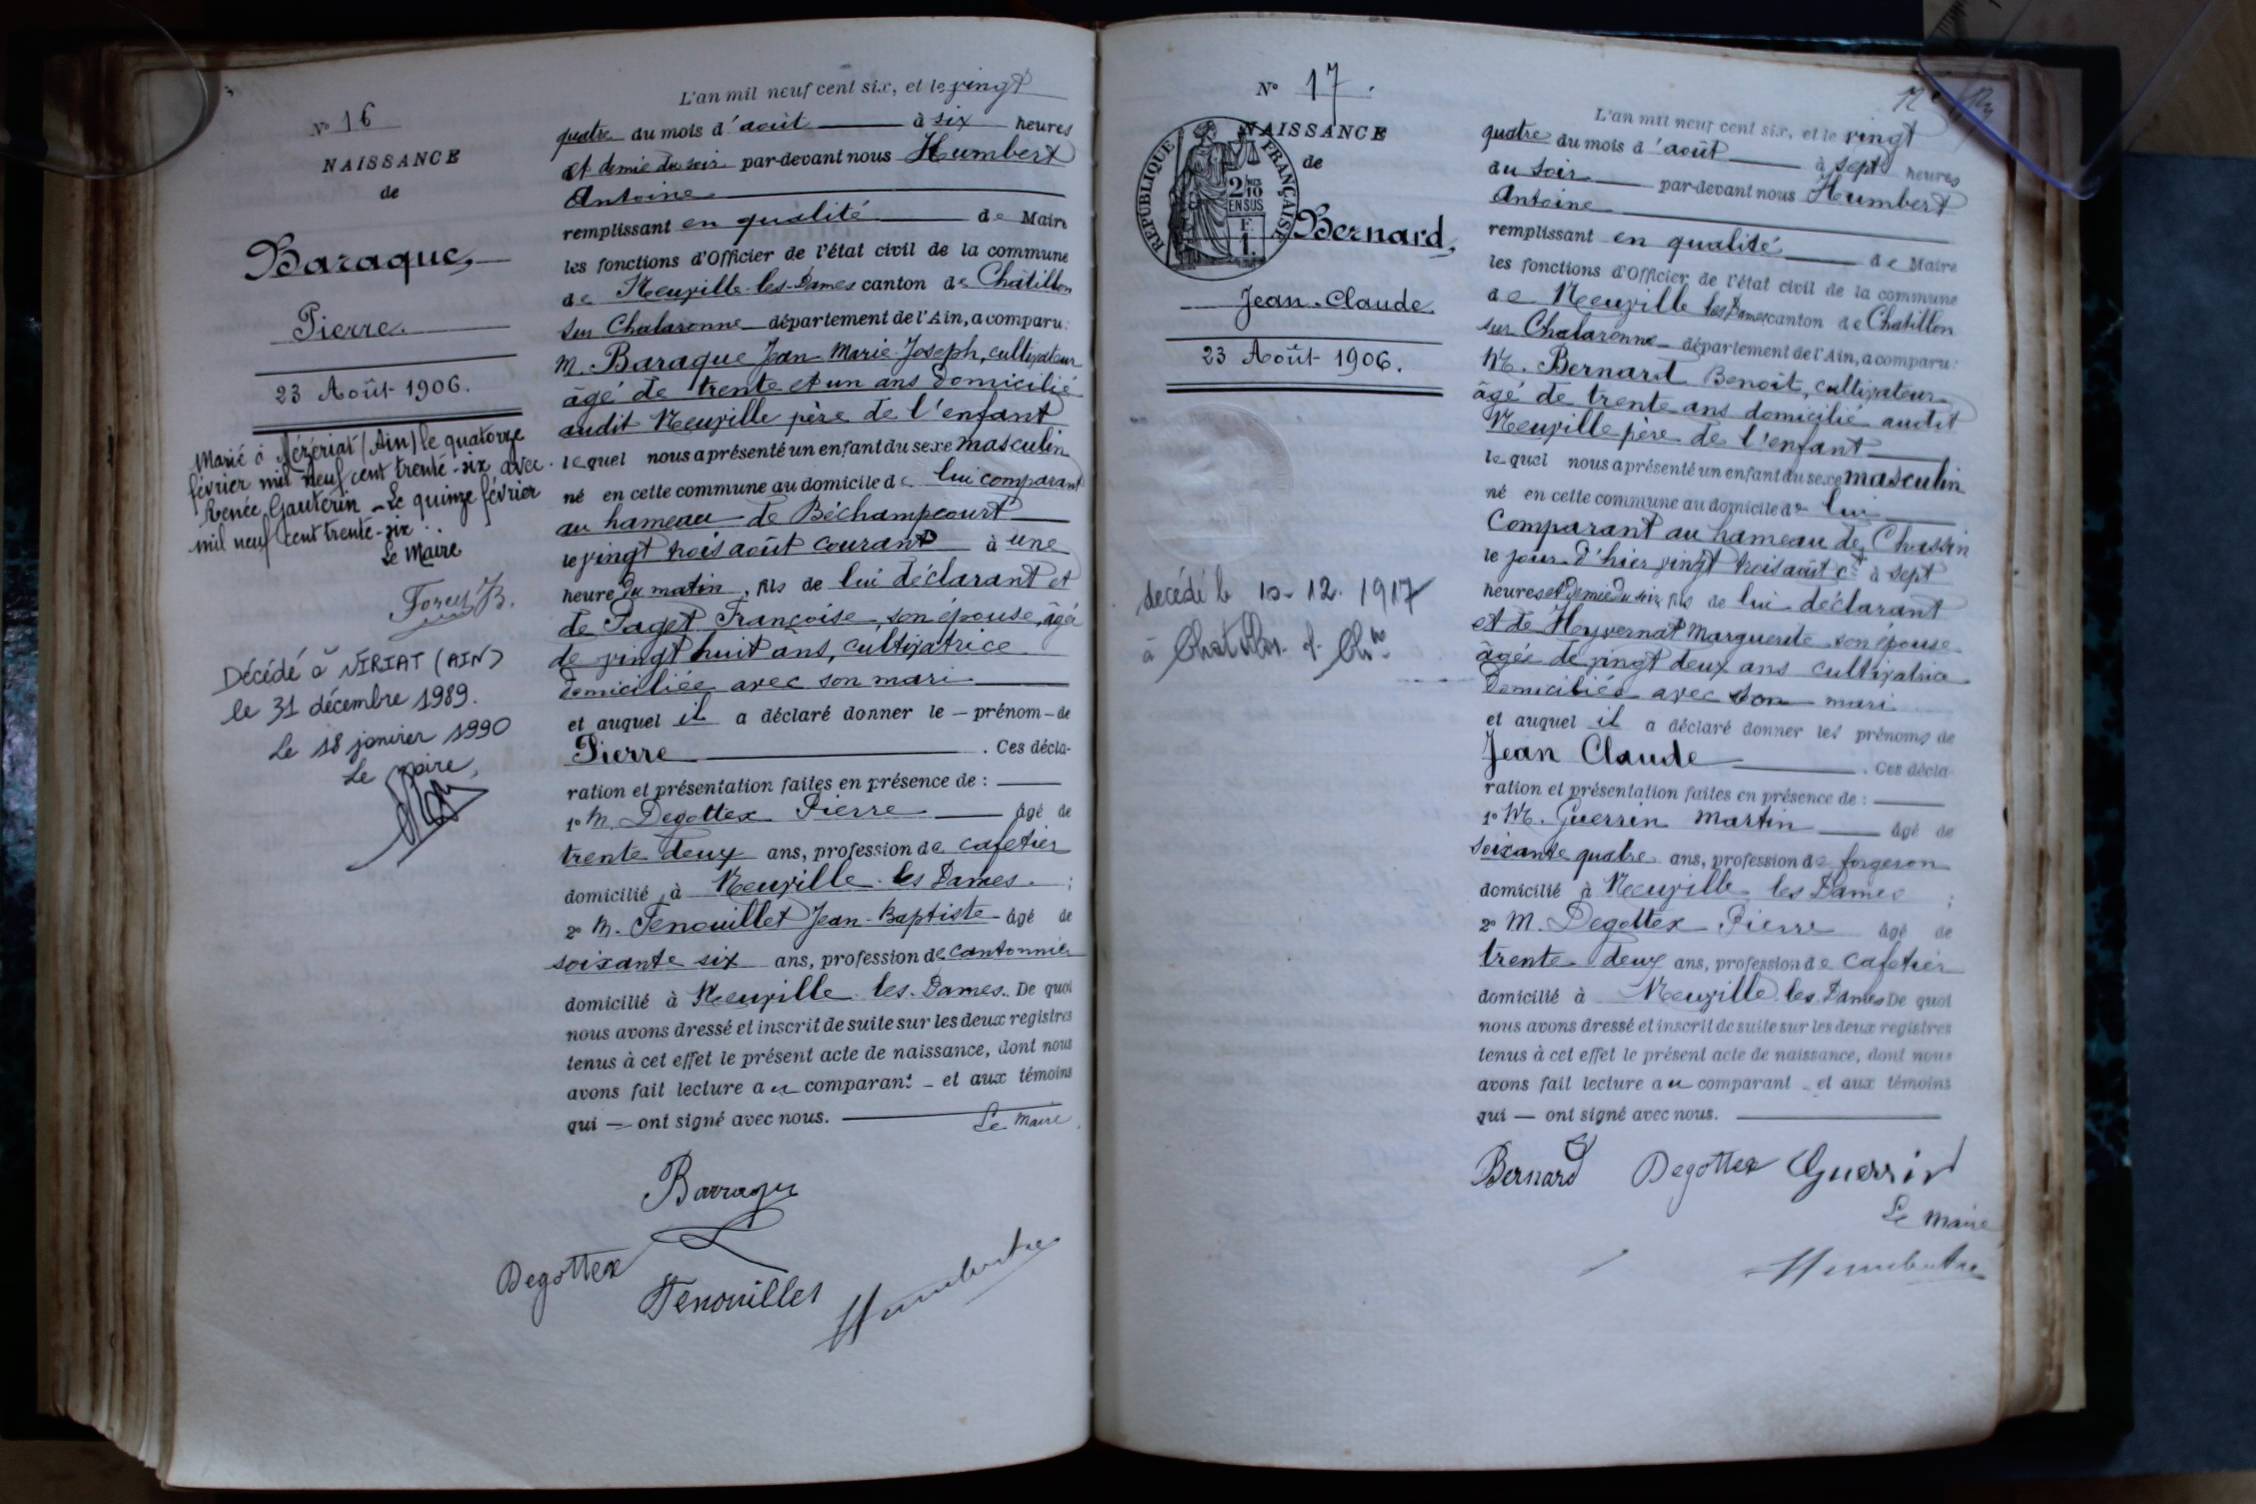 N° 16
NAISSANCE
de
Baraque
Pierre
23 Août 1906.
Marié à Mézériat (Ain) le quatorze
février mil neuf cent trente-six avec
Renée Gauterin - Le quinze février
mil neuf cent trente-six.
Le Maire
Décédé à VIRIAT (AIN)
le 31 décembre 1989.
Le 18 janvier 1990
Le maire,
L'an mil neuf cent six, et le vingt
quatre du mois d'août à six heures
et demie du soir par-devant nous Humbert
Antoine
remplissant en qualité de Maire
les fonctions d'Officier de l'état civil de la commune
de Neuville-les-Dames canton de Châtillon
sur Chalaronne département de l'Ain, a comparu:
M. Baraque Jean Marie Joseph, cultivateur
âgé de trente et un ans domicilié
audit Neuville père de l'enfant
lequel nous a présenté un enfant du sexe masculin
né en cette commune au domicile de lui comparant
au hameau de Béchampcourt
le vingt trois août courant à une
heure du matin, fils de lui déclarant et
de Paget Françoise, son épouse, âgée
de vingt huit ans, cultivatrice
domiciliée avec son mari
et auquel il a déclaré donner le - prénom - de
Pierre . Ces décla-
ration et présentation faites en présence de :
1° M. Degottex Pierre âgé de
trente deux ans, profession de cafetier
domicilié à Neuville les Dames. ;
2° M. Fenouillet Jean-Baptiste âgé de
soixante six ans, profession de cantonnier
domicilié à Neuville les Dames. De quoi
nous avons dressé et inscrit de suite sur les deux registres
tenus à cet effet le présent acte de naissance, dont nous
avons fait lecture au comparant - et aux témoins
qui — ont signé avec nous.
Le Maire
Barraque
Degottex
Fenouillet
N° 17.
NAISSANCE
de
RÉPUBLIQUE FRANÇAISE
2/10
EN SUS
1 F.
Bernard,
Jean-Claude
23 Août 1906.
décédé le 10-12. 1917
à
L'an mil neuf cent six, et le vingt
quatre du mois d'août à sept heures
du soir par-devant nous Humbert
Antoine
remplissant en qualité de Maire
les fonctions d'Officier de l'état civil de la commune
de Neuville les Dames canton de Chatillon
sur Chalaronne département de l'Ain, a comparu:
M. Bernard Benoit, cultivateur
âgé de trente ans domicilié audit
Neuville père de l'enfant
lequel nous a présenté un enfant du sexe masculin
né en cette commune au domicile de lui
comparant au hameau de Chassin
le jour d'hier vingt trois août ct à sept
heures et demie du soir fils de lui déclarant
et de Heyvernat Marguerite son épouse
âgée de vingt deux ans cultivatrice
domiciliée avec son mari
et auquel il a déclaré donner les prénoms de
Jean Claude . Ces décla-
ration et présentation faites en présence de :
1° M. Guerrin Martin âgé de
soixante quatre ans, profession de forgeron
domicilié à Neuville les Dames ;
2° M. Degottex Pierre âgé de
trente deux ans, profession de cafetier
domicilié à Neuville les Dames De quoi
nous avons dressé et inscrit de suite sur les deux registres
tenus à cet effet le présent acte de naissance, dont nous
avons fait lecture au comparant - et aux témoins
qui — ont signé avec nous.
Bernard Degottex Guerrin
Le Maire